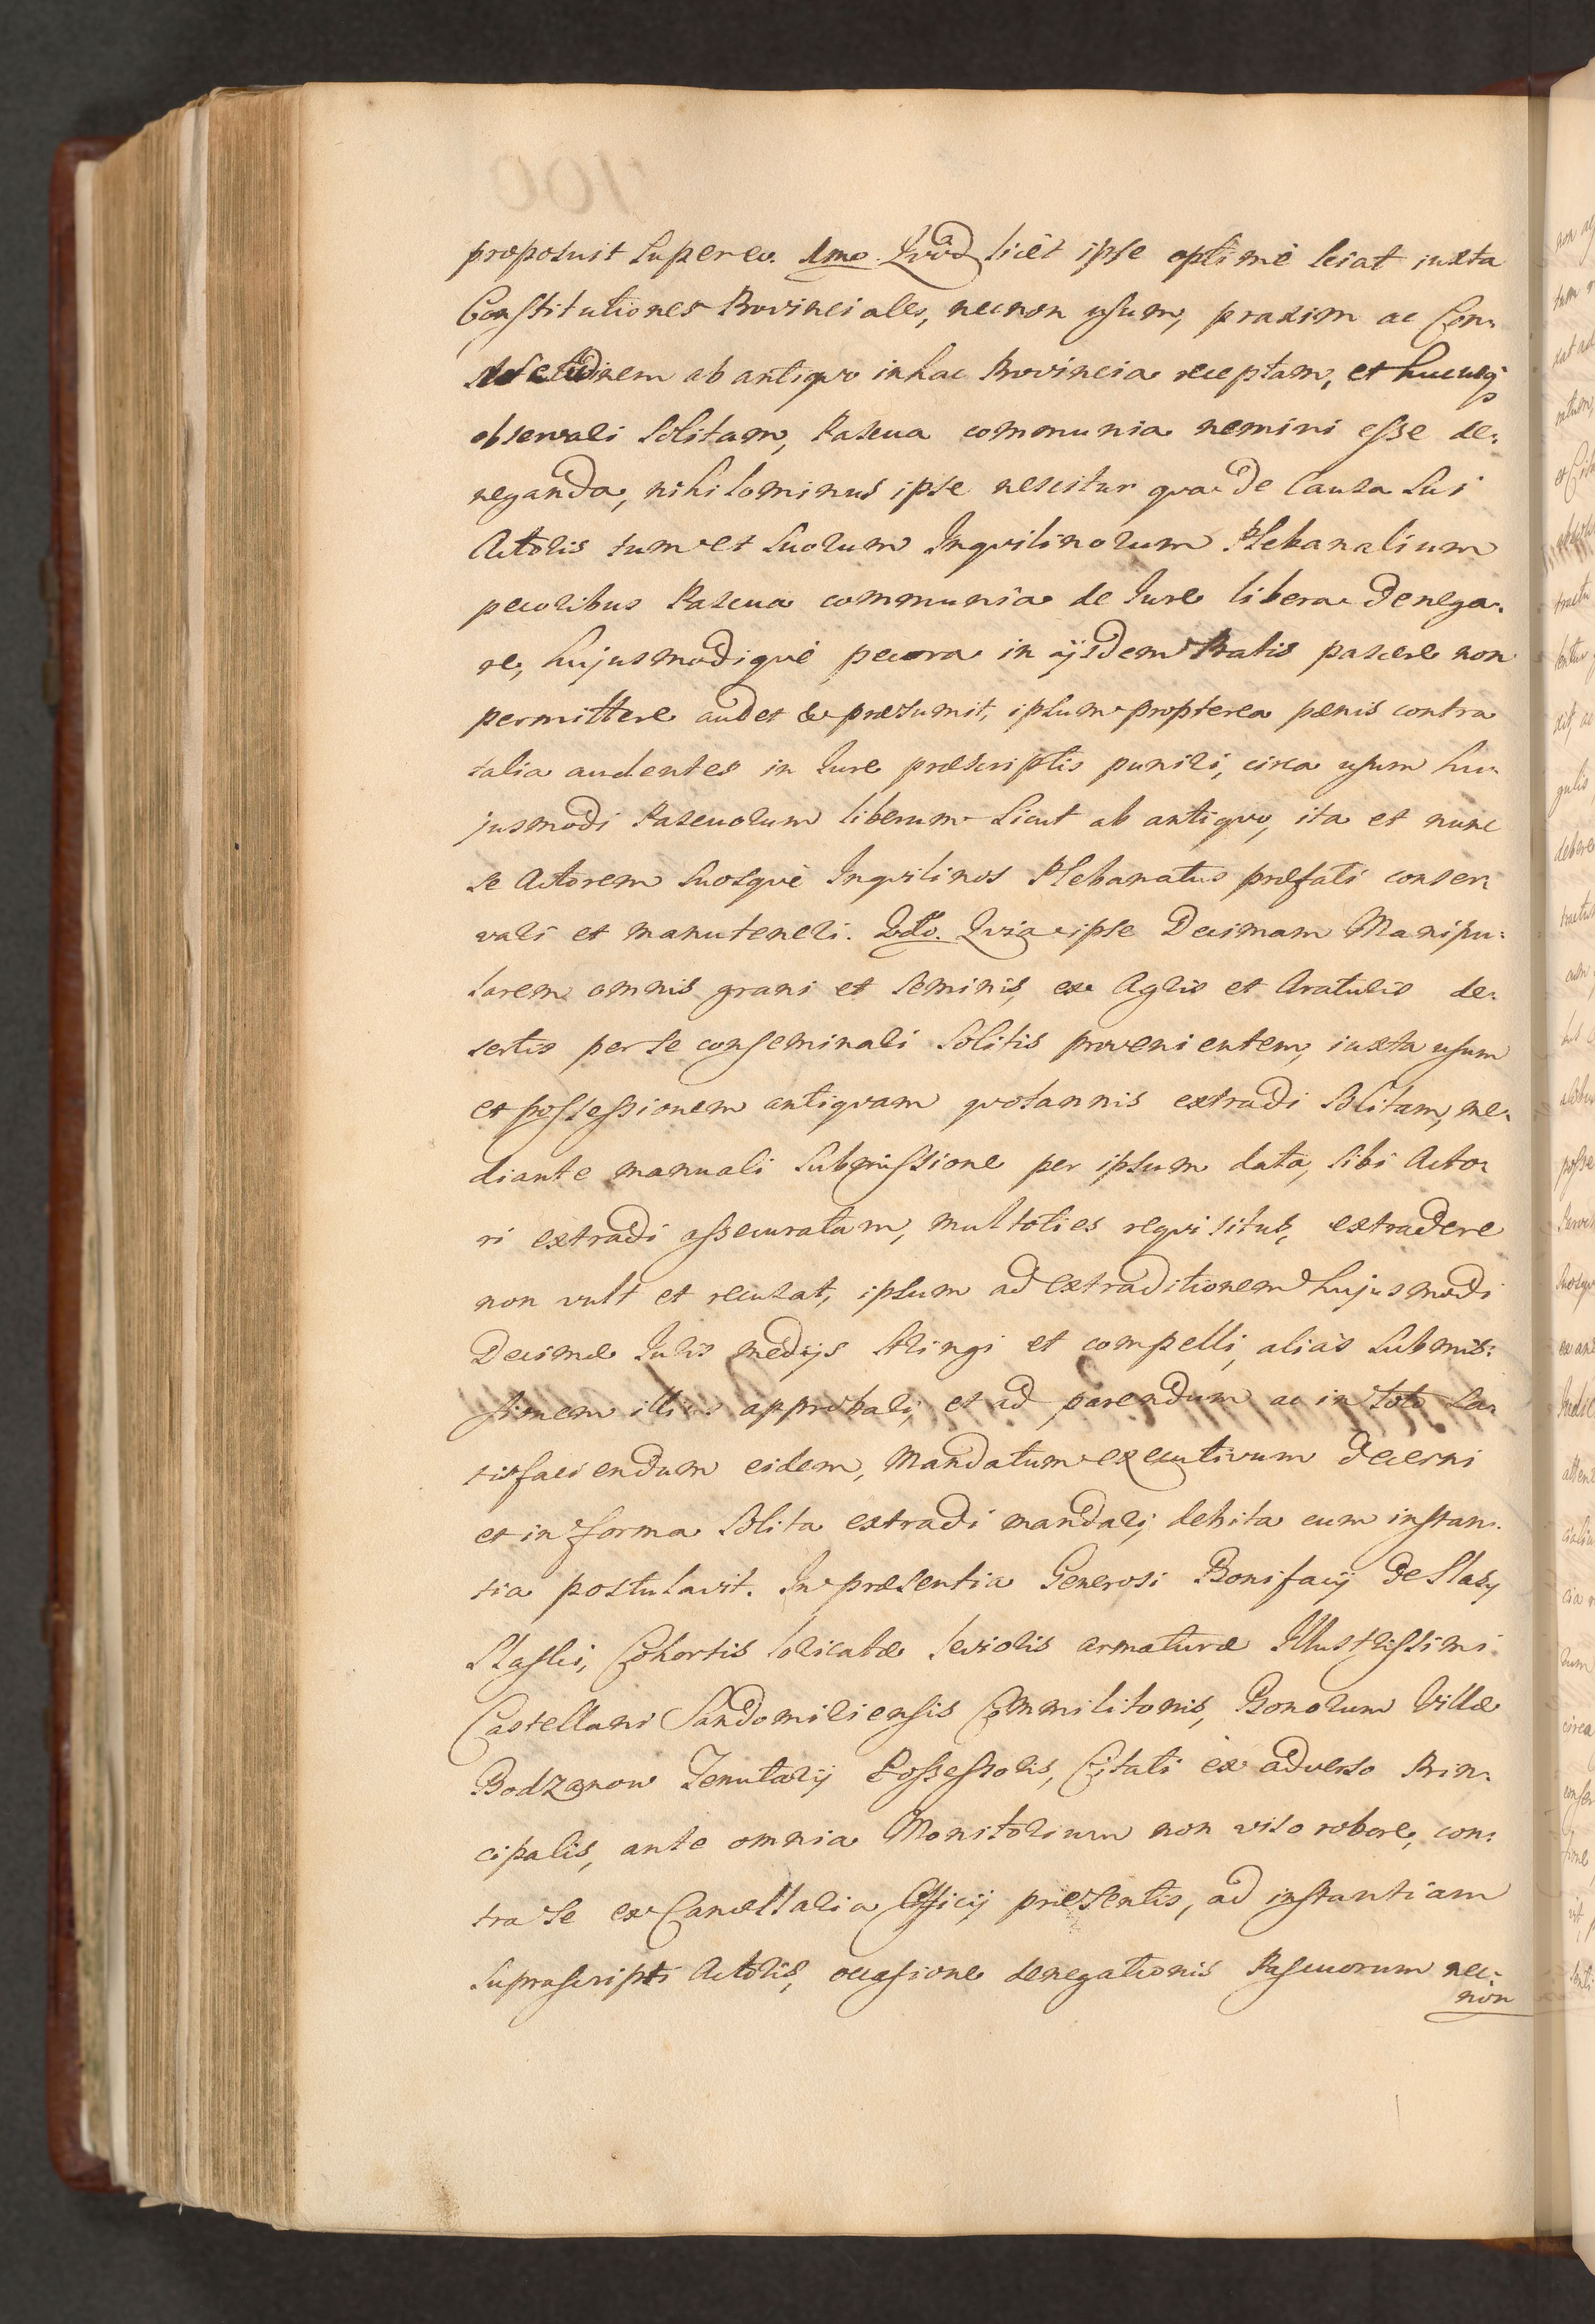 proposuit Super eo. 1mo. Qvod licèt ipse optimè sciat iuxta
Constitutiones Provinciales, necnon usum, praxim ac Con-
svetudinem ab antiqvo in hac Provincia receptam, et hucusq
observari Solitam, Pascua communia nemini esse de-
neganda, nihilominus ipse nescitur qva de Causa Sui
Actoris tum et Suorum Inqvilinorum Plebanalium
pecoribus Pascua communia de Jure libera denega-
re, hujusmodiqvè pecora in ijsdem Pratis pascere non
permittere audet & præsumit, ipsum propterea pænis contra
talia audentes in Jure præscriptis puniri, circa usum hu-
jusmodi Pascuorum liberum Sicut ab antiqvo, ita et nunc
se Actorem Suosqvè Inqvilinos Plebanatus præfati conser-
vari et manuteneri. 2do. Qvia ipse Decimam Manipu-
larem omnis grani et Seminis, ex Agris et Araturis de-
sertis per se conseminari Solitis provenientem, iuxta usum
et possessionem antiqvam qvotannis extradi Solitam, me-
diante manuali Submissione per ipsum data, Sibi Acto-
ri extradi assecuratam, multoties reqvisitus, extradere
non vult et recusat, ipsum ad extraditionem hujusmodi
Decimæ Juris medijs Stringi et compelli, alias Submis-
sionem illius approbari, et ad parendum ac in toto Sa-
tisfaciendum eidem, Mandatum executivum decerni
et in forma Solita extradi mandari, debita cum instan-
tia postulavit. In præsentia Generosi Bonifacij de Slasy
Slaski, Cohortis loricatæ levioris armaturæ Illustrissimi
Castellani Sandomiriensis Commilitonis, Bonorum Villæ
Bodzanow Tenutarij Possessoris, Citati ex adverso Prin-
cipalis, ante omnia Monitorium non viso robore, con-
tra Se ex Cancellaria Officij præsentis, ad instantiam
Suprascripti Actoris, occasione denegationis Pascuorum nec-
non